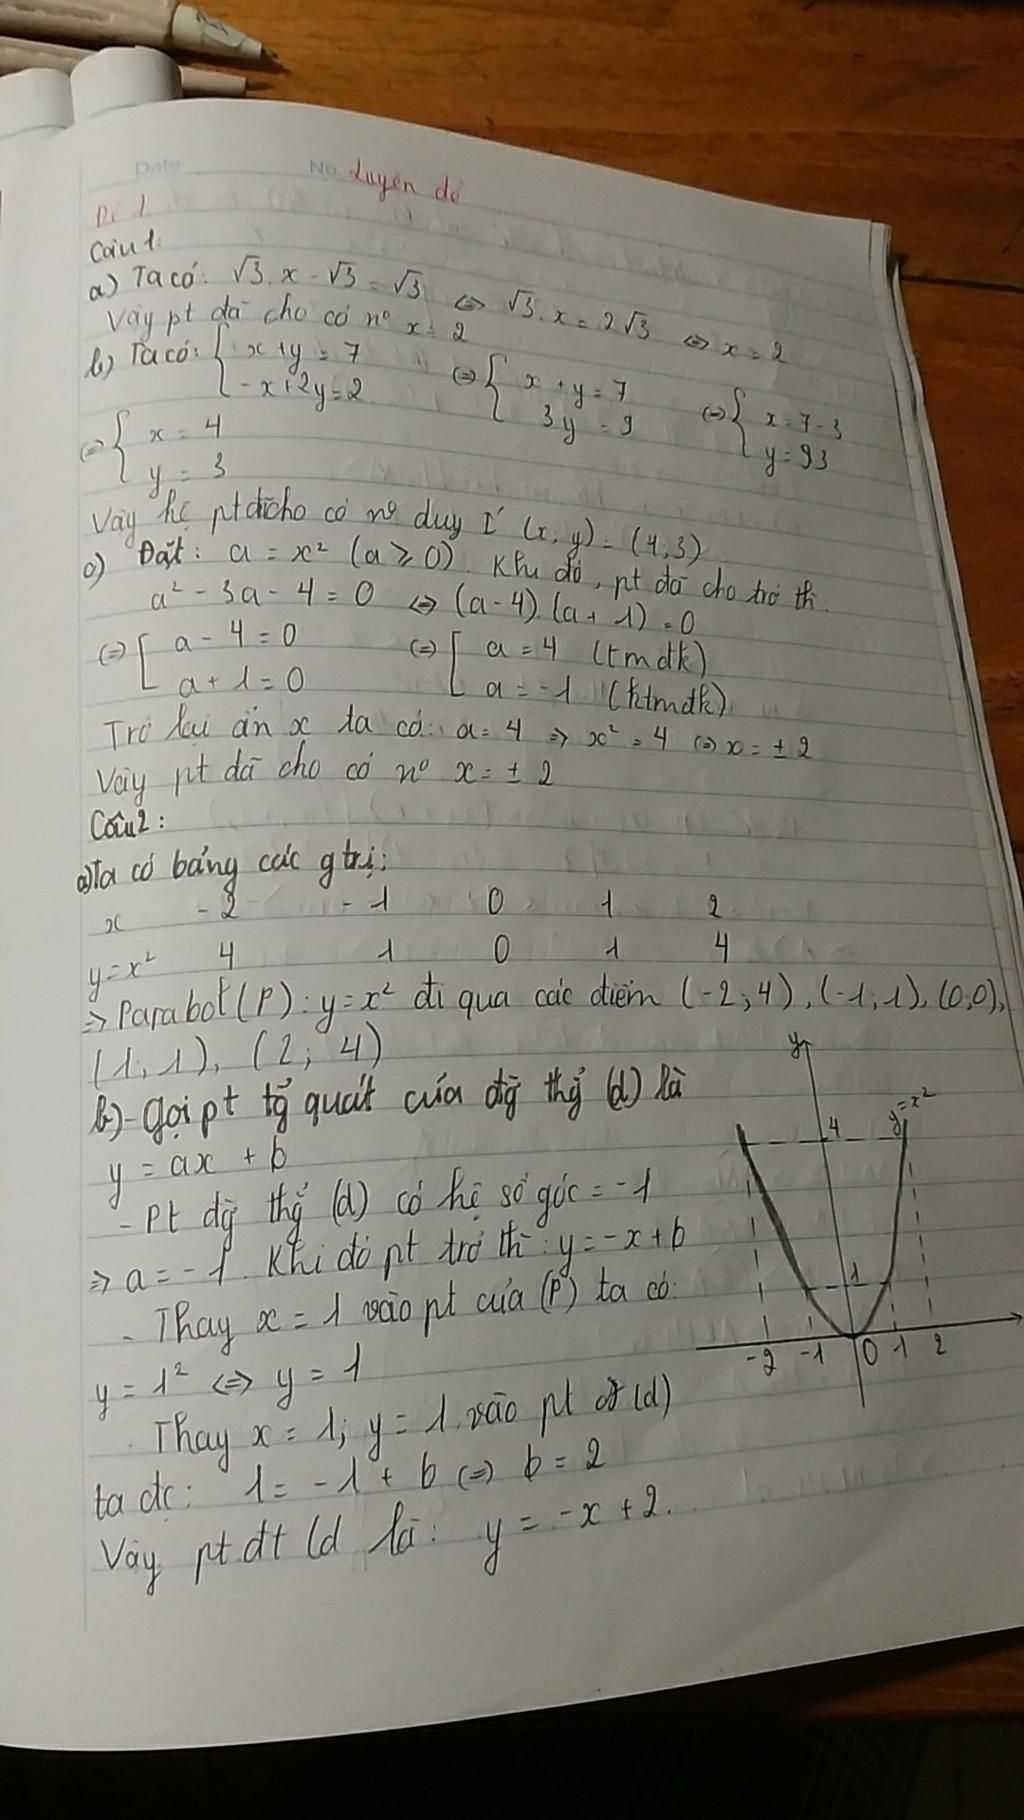 Date No. Luyện đề
Đề 1
Câu 1:
a) Ta có: √3.x - √3 = √3 <=> √3.x = 2√3 <=> x = 2
Vậy pt đã cho có nº x = 2
b) Ta có: { x + y = 7 <=> { x + y = 7 <=> { x = 7 - 3
-x + 2y = 2 3y = 9 y = 3
<=> { x = 4
y = 3
Vậy hệ pt đã cho có nº duy I' (x, y) = (4, 3)
c) Đặt: a = x² (a ≥ 0). Khi đó, pt đã cho trở th:
a² - 3a - 4 = 0 <=> (a - 4).(a + 1) = 0
<=> [ a - 4 = 0 <=> [ a = 4 (tmđk)
a + 1 = 0 a = -1 (ktmđk)
Trở lại ẩn x ta có: a = 4 => x² = 4 <=> x = ± 2
Vậy pt đã cho có nº x = ± 2
Câu 2:
a) Ta có bảng các gtrị:
x -2 -1 0 1 2
y = x² 4 1 0 1 4
=> Parabol (P): y = x² đi qua các điểm (-2; 4), (-1; 1), (0,0),
(1; 1), (2; 4)
b) - Gọi pt tổ quát của đg thẳ (d) là
y = ax + b
- Pt đg thẳ (d) có hệ số góc = -1
=> a = -1. Khi đó pt trở th: y = -x + b
- Thay x = 1 vào pt của (P) ta có:
y = 1² <=> y = 1
Thay x = 1; y = 1 vào pt (d)
ta đc: 1 = -1 + b <=> b = 2
Vậy pt đt (d là: y = -x + 2.
y
y = x²
4
1
-2 -1 0 1 2